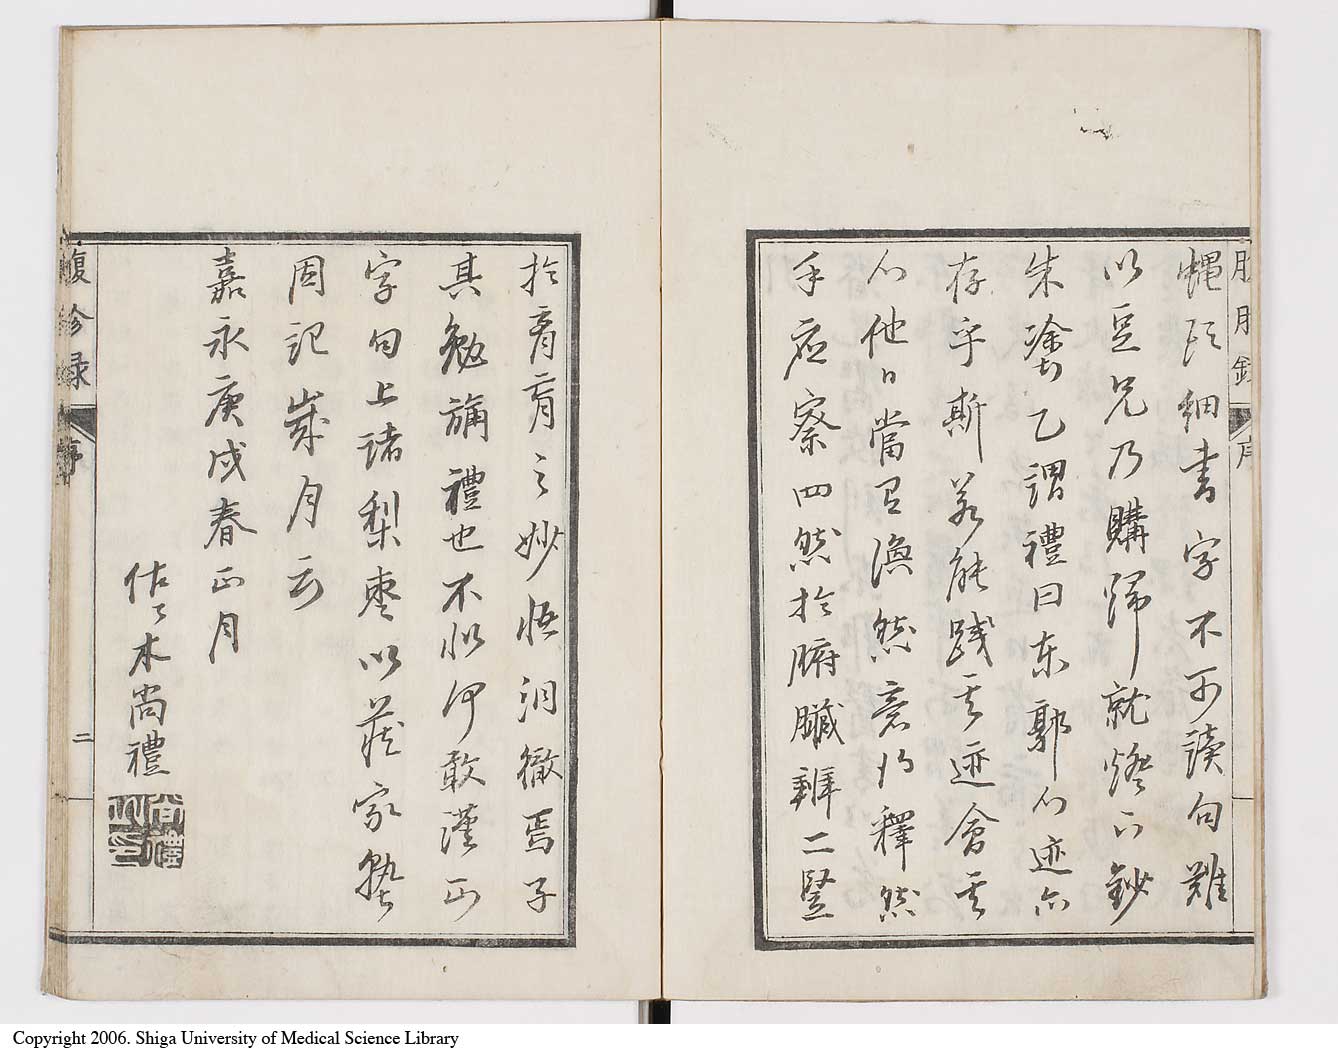 蠅頭細書字不可讀句難
以豆兄乃購歸就燈下鈔
朱塗乙謂禮曰東郭心迹亦
存乎斯若能踐其迹會其
心他日當有渙然意得釋然
手应察四然於腑臟辨二竪
於肓之妙悟洞徹焉子
其勉旃禮也不似何敢謹正
字句上諸梨棗以藏家塾
因記歲月云
嘉永庚戌春正月
佐々木尚禮
腹診録
序
二
Copyright 2006. Shiga University of Medical Science Library